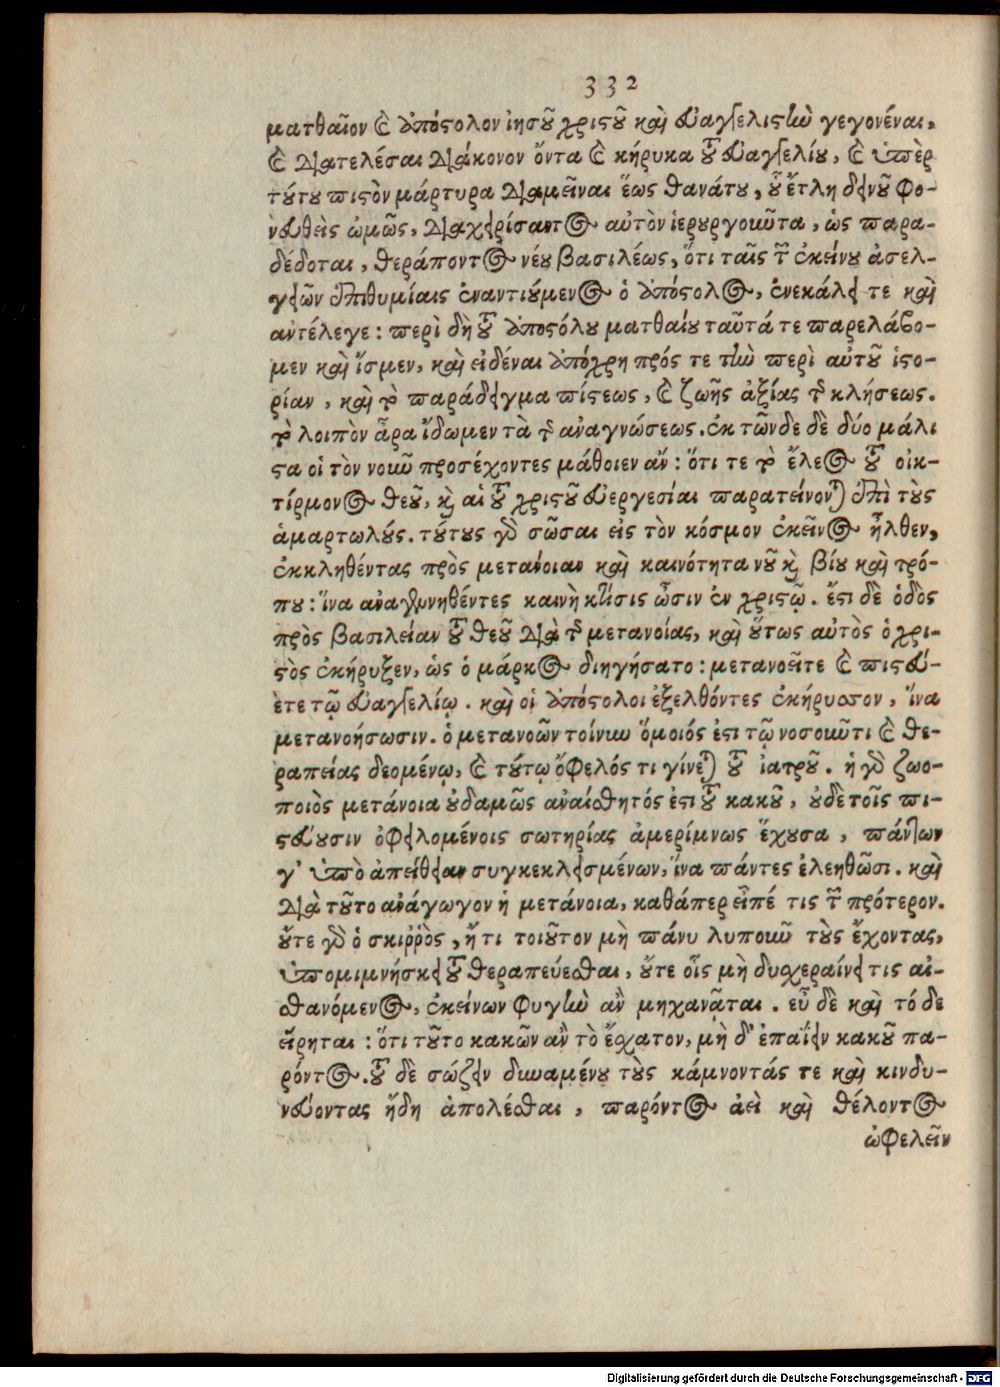 332
ματθαῖον καὶ ἀπόστολον ἰησοῦ χριστοῦ καὶ εὐαγγελιστὴν γεγονέναι,
καὶ διατελέσαι διάκονον ὄντα καὶ κήρυκα τοῦ εὐαγγελίου, καὶ ὑπὲρ
τούτου πιστὸν μάρτυρα διαμεῖναι ἕως θανάτου, οὗ ἔτλη δεινοῦ φο-
νευθεὶς ὠμῶς, διαχειρίσαντος αὐτὸν ἱερουργοῦντα, ὡς παρα-
δέδοται, θεράποντος νέου βασιλέως, ὅτι ταῖς τῶν ἐκείνου ἀσελ-
γειῶν ἐπιθυμίαις ἐναντιούμενος ὁ ἀπόστολος, ἐνεκάλει τε καὶ
ἀντέλεγε: περὶ δὴ τοῦ ἀποστόλου ματθαίου ταῦτά τε παρελάβο-
μεν καὶ ἴσμεν, καὶ εἰδέναι ἀπόχρη πρός τε τὴν περὶ αὐτοῦ ἱστο-
ρίαν, καὶ τὸ παράδειγμα πίστεως, καὶ ζωῆς ἀξίας τῆς κλήσεως.
τὸ λοιπὸν ἆρα ἴδωμεν τὰ τῆς ἀναγνώσεως. ἐκ τῶνδε δὲ δύο μάλι
στα οἱ τὸν νοῦν προσέχοντες μάθοιεν ἄν: ὅτι τε τὸ ἔλεος τοῦ οἰκ-
τίρμονος θεοῦ, καὶ αἱ τοῦ χριστοῦ εὐεργεσίαι παρατείνονται ἐπὶ τοὺς
ἁμαρτωλούς. τούτους γὰρ σῶσαι εἰς τὸν κόσμον ἐκεῖνος ἦλθεν,
ἐκκληθέντας πρὸς μετάνοιαν καὶ καινότητα νοῦ καὶ βίου καὶ τρό-
που: ἵνα ἀναγεννηθέντες καινὴ κτίσις ὦσιν ἐν χριστῷ. ἔστι δὲ ὁδὸς
πρὸς βασιλείαν τοῦ θεοῦ διὰ τῆς μετανοίας, καὶ οὕτως αὐτὸς ὁ χρι-
στὸς ἐκήρυξεν, ὡς ὁ μάρκος διηγήσατο: μετανοεῖτε καὶ πιστεύ-
ετε τῷ εὐαγγελίῳ. καὶ οἱ ἀπόστολοι ἐξελθόντες ἐκήρυσσον, ἵνα
μετανοήσωσιν. ὁ μετανοῶν τοίνυν ὅμοιός ἐστι τῷ νοσοῦντι καὶ θε-
ραπείας δεομένῳ, καὶ τούτῳ ὄφελός τι γίνεται τοῦ ἰατροῦ. ἡ γὰρ ζωο-
ποιὸς μετάνοια οὐδαμῶς ἀναίσθητός ἐστι τοῦ κακοῦ, οὐδὲ τοῖς πι-
στεύουσιν ὀφειλομένοις σωτηρίας ἀμερίμνως ἔχουσα, πάντων
γ' ὑπὸ ἀπείθειαν συγκεκλεισμένων, ἵνα πάντες ἐλεηθῶσι. καὶ
διὰ τοῦτο ἀνάγωγον ἡ μετάνοια, καθάπερ εἶπέ τις τῶν πρότερον.
οὔτε γὰρ ὁ σκιῤῥὸς, ἤ τι τοιοῦτον μὴ πάνυ λυποῦν τοὺς ἔχοντας,
ὑπομιμνήσκει τοῦ θεραπεύεσθαι, οὔτε οἷς μὴ δυσχεραίνει τις αἰ-
σθανόμενος, ἐκείνων φυγὴν ἂν μηχανᾶται. εὖ δὲ καὶ τό δε
εἴρηται: ὅτι τοῦτο κακῶν ἂν τὸ ἔσχατον, μὴ δ' ἐπαΐειν κακοῦ πα-
ρόντος. τοῦ δὲ σώζειν δυναμένου τοὺς κάμνοντάς τε καὶ κινδυ-
νεύοντας ἤδη ἀπολέσθαι, παρόντος ἀεὶ καὶ θέλοντος
ὠφελεῖν
Digitalisierung gefördert durch die Deutsche Forschungsgemeinschaft - DFG